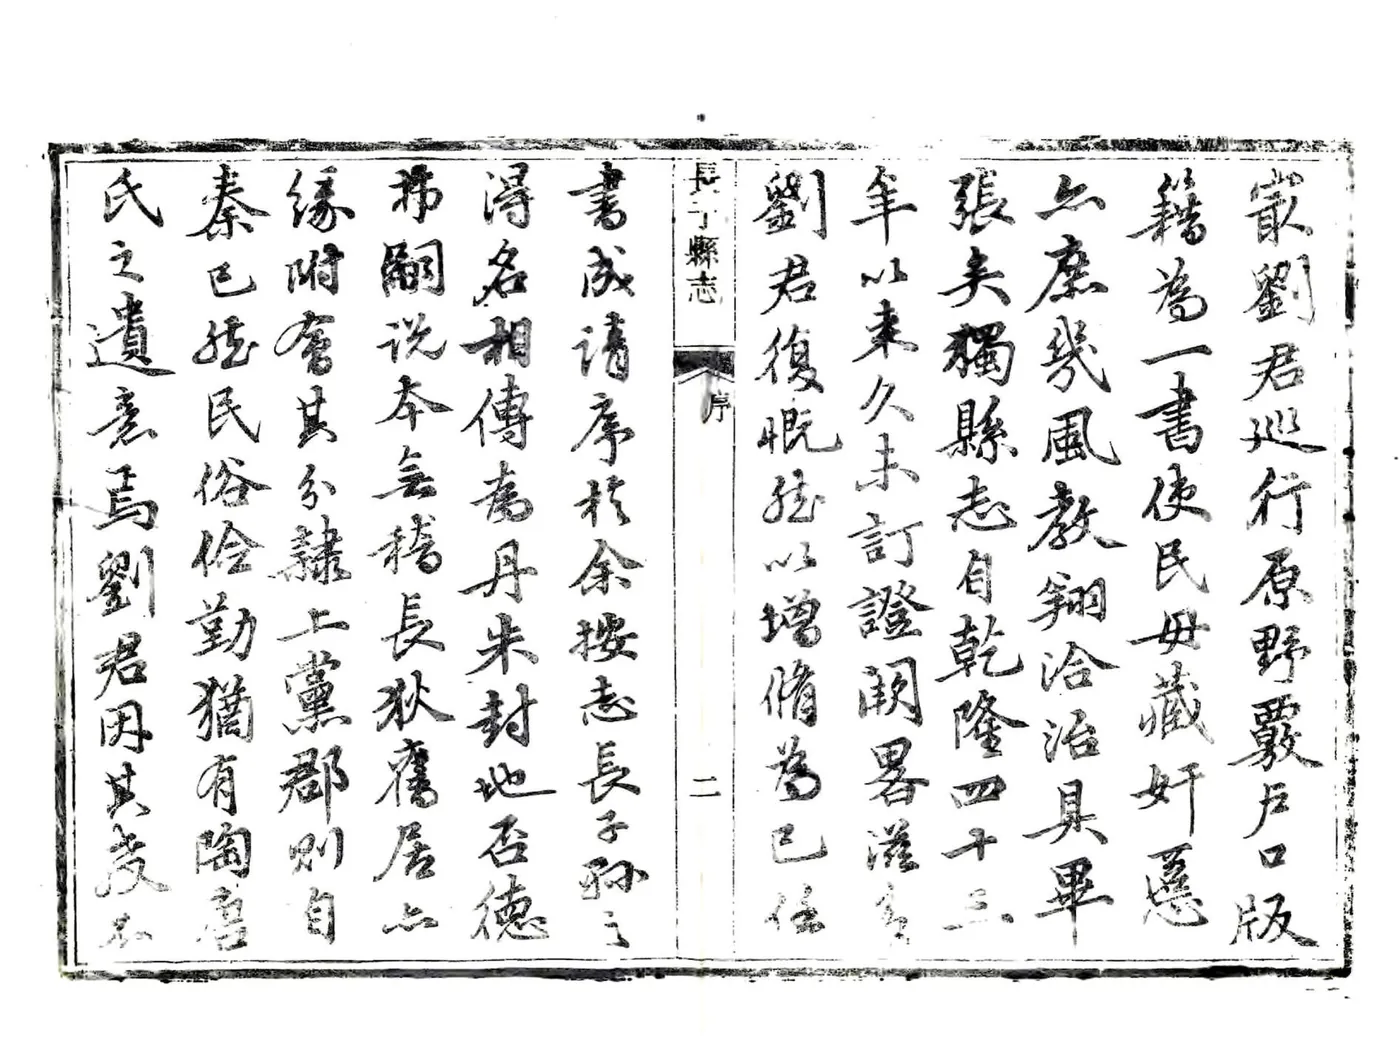 宸劉君巡行原野覈戶口版
籍為一書使民毋藏奸慝
亦庶幾風教翔洽治具畢
張矣獨縣志自乾隆四十三
年以来久未訂證闕畧滋多
劉君復慨然以增脩為己任
長子縣志
序
二
書成請序於余按志長子孫之
淂名相傳為丹朱封地否德
弗嗣说本無稽長狄舊居亦
緣附會其分隸上黨郡則自
秦已然民俗儉勤猶有陶唐
氏之遺意焉劉君因其教不